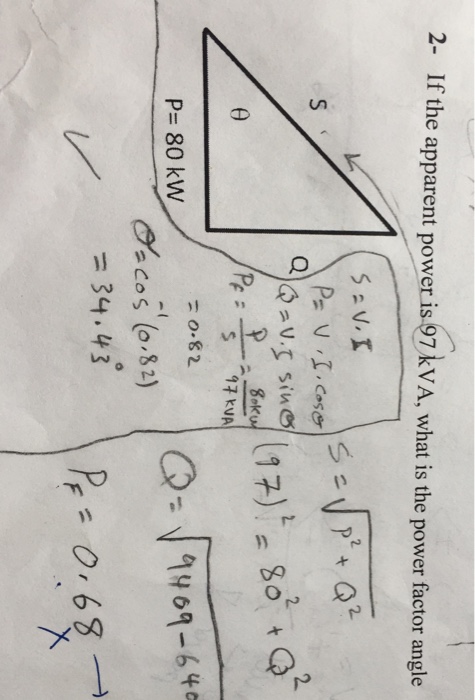 2- If the apparent power is 97 kVA, what is the power factor angle
S
θ
Q
P= 80 kW
S = V.I
P = V.I.cosθ
Q = V.I sinθ
PF = P/S = 80kW/97 KVA
= 0.82
θ = cos⁻¹(0.82)
= 34.43°
✓
S = √P² + Q²
(97)² = 80² + Q²
Q = √9409-640
PF = 0.68 →
X